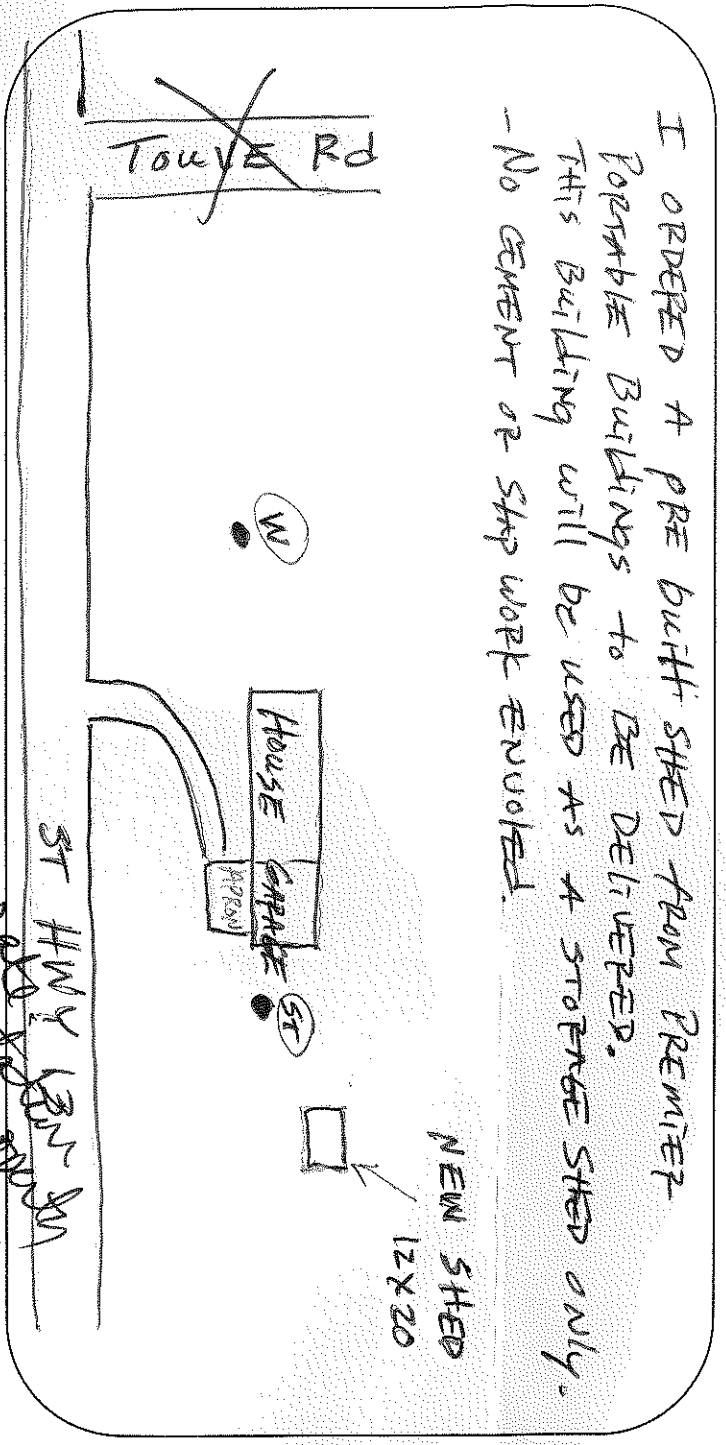 I ORDERED A PRE built SHED from PREMIER
PORTABLE Buildings to BE DELIVERED.
THis Building will be USED AS A STORAGE SHED ONLY.
- No CEMENT OR SLAP WORK ENVOLED.
NEW SHED
12X20
TOUVE Rd
W
HOUSE GARAGE
ST
APRON
ST HWY